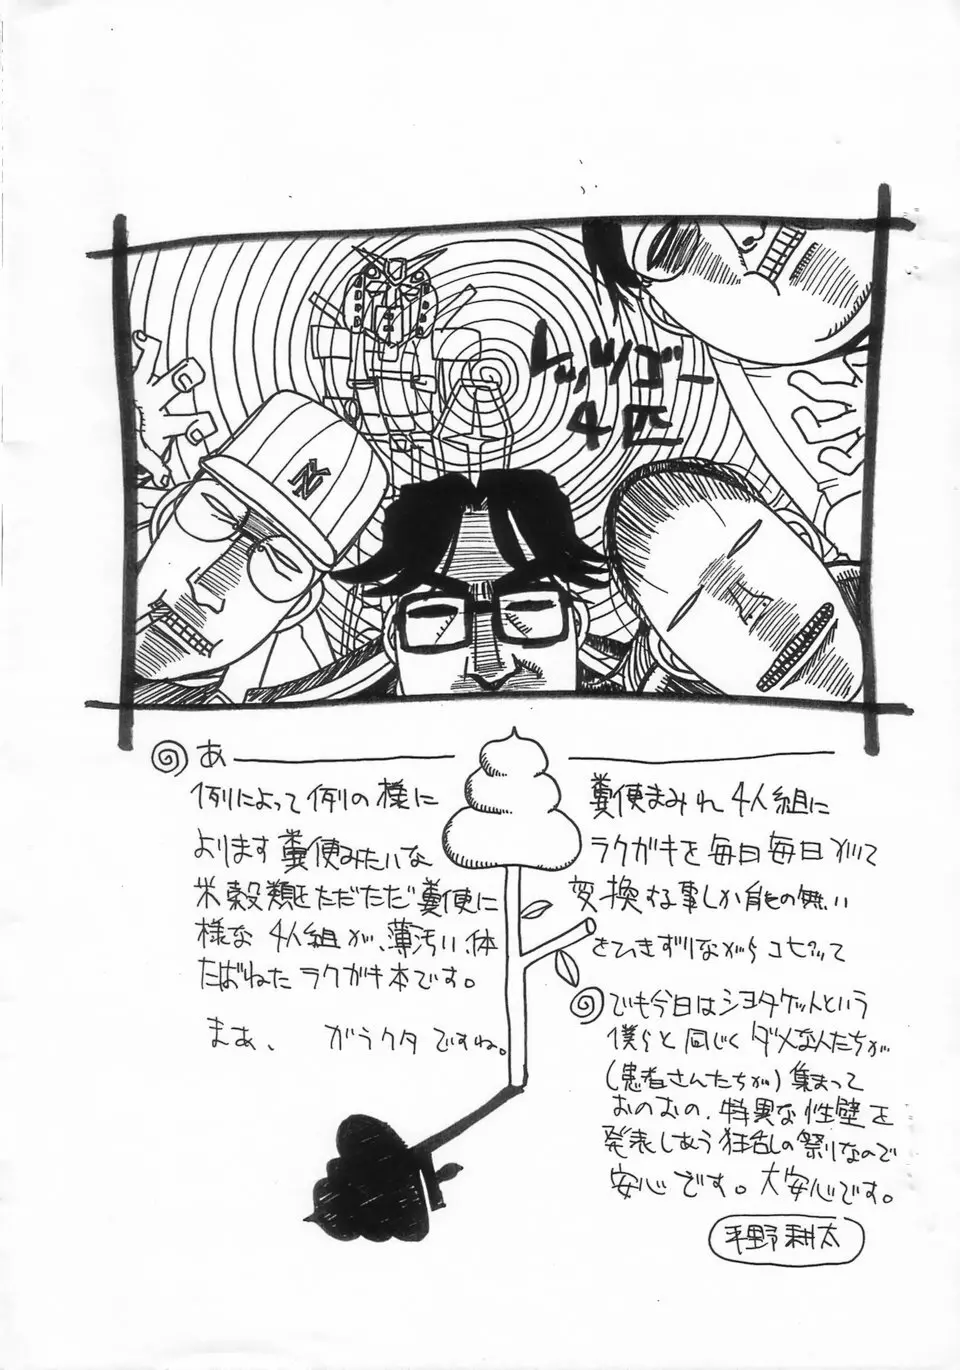 レッツゴー
4匹
NY
あ
例によって例の様に 糞便まみれ4人組に
よります糞便みたいな ラクガキを毎日毎日がいて
米穀類をただただ糞便に 変換する事しか能の無い
様な4人組が、薄汚い体 をひきずりながらコピッて
たばねたラクガキ本です。
まあ、 ガラクタですね。
でも今日はショタケットという
僕らと同じくダメな人たちが
(患者さんたちが)集まって
おのおの、特異な性壁を
発表しあう狂乱の祭りなので
安心です。大安心です。
平野耕太